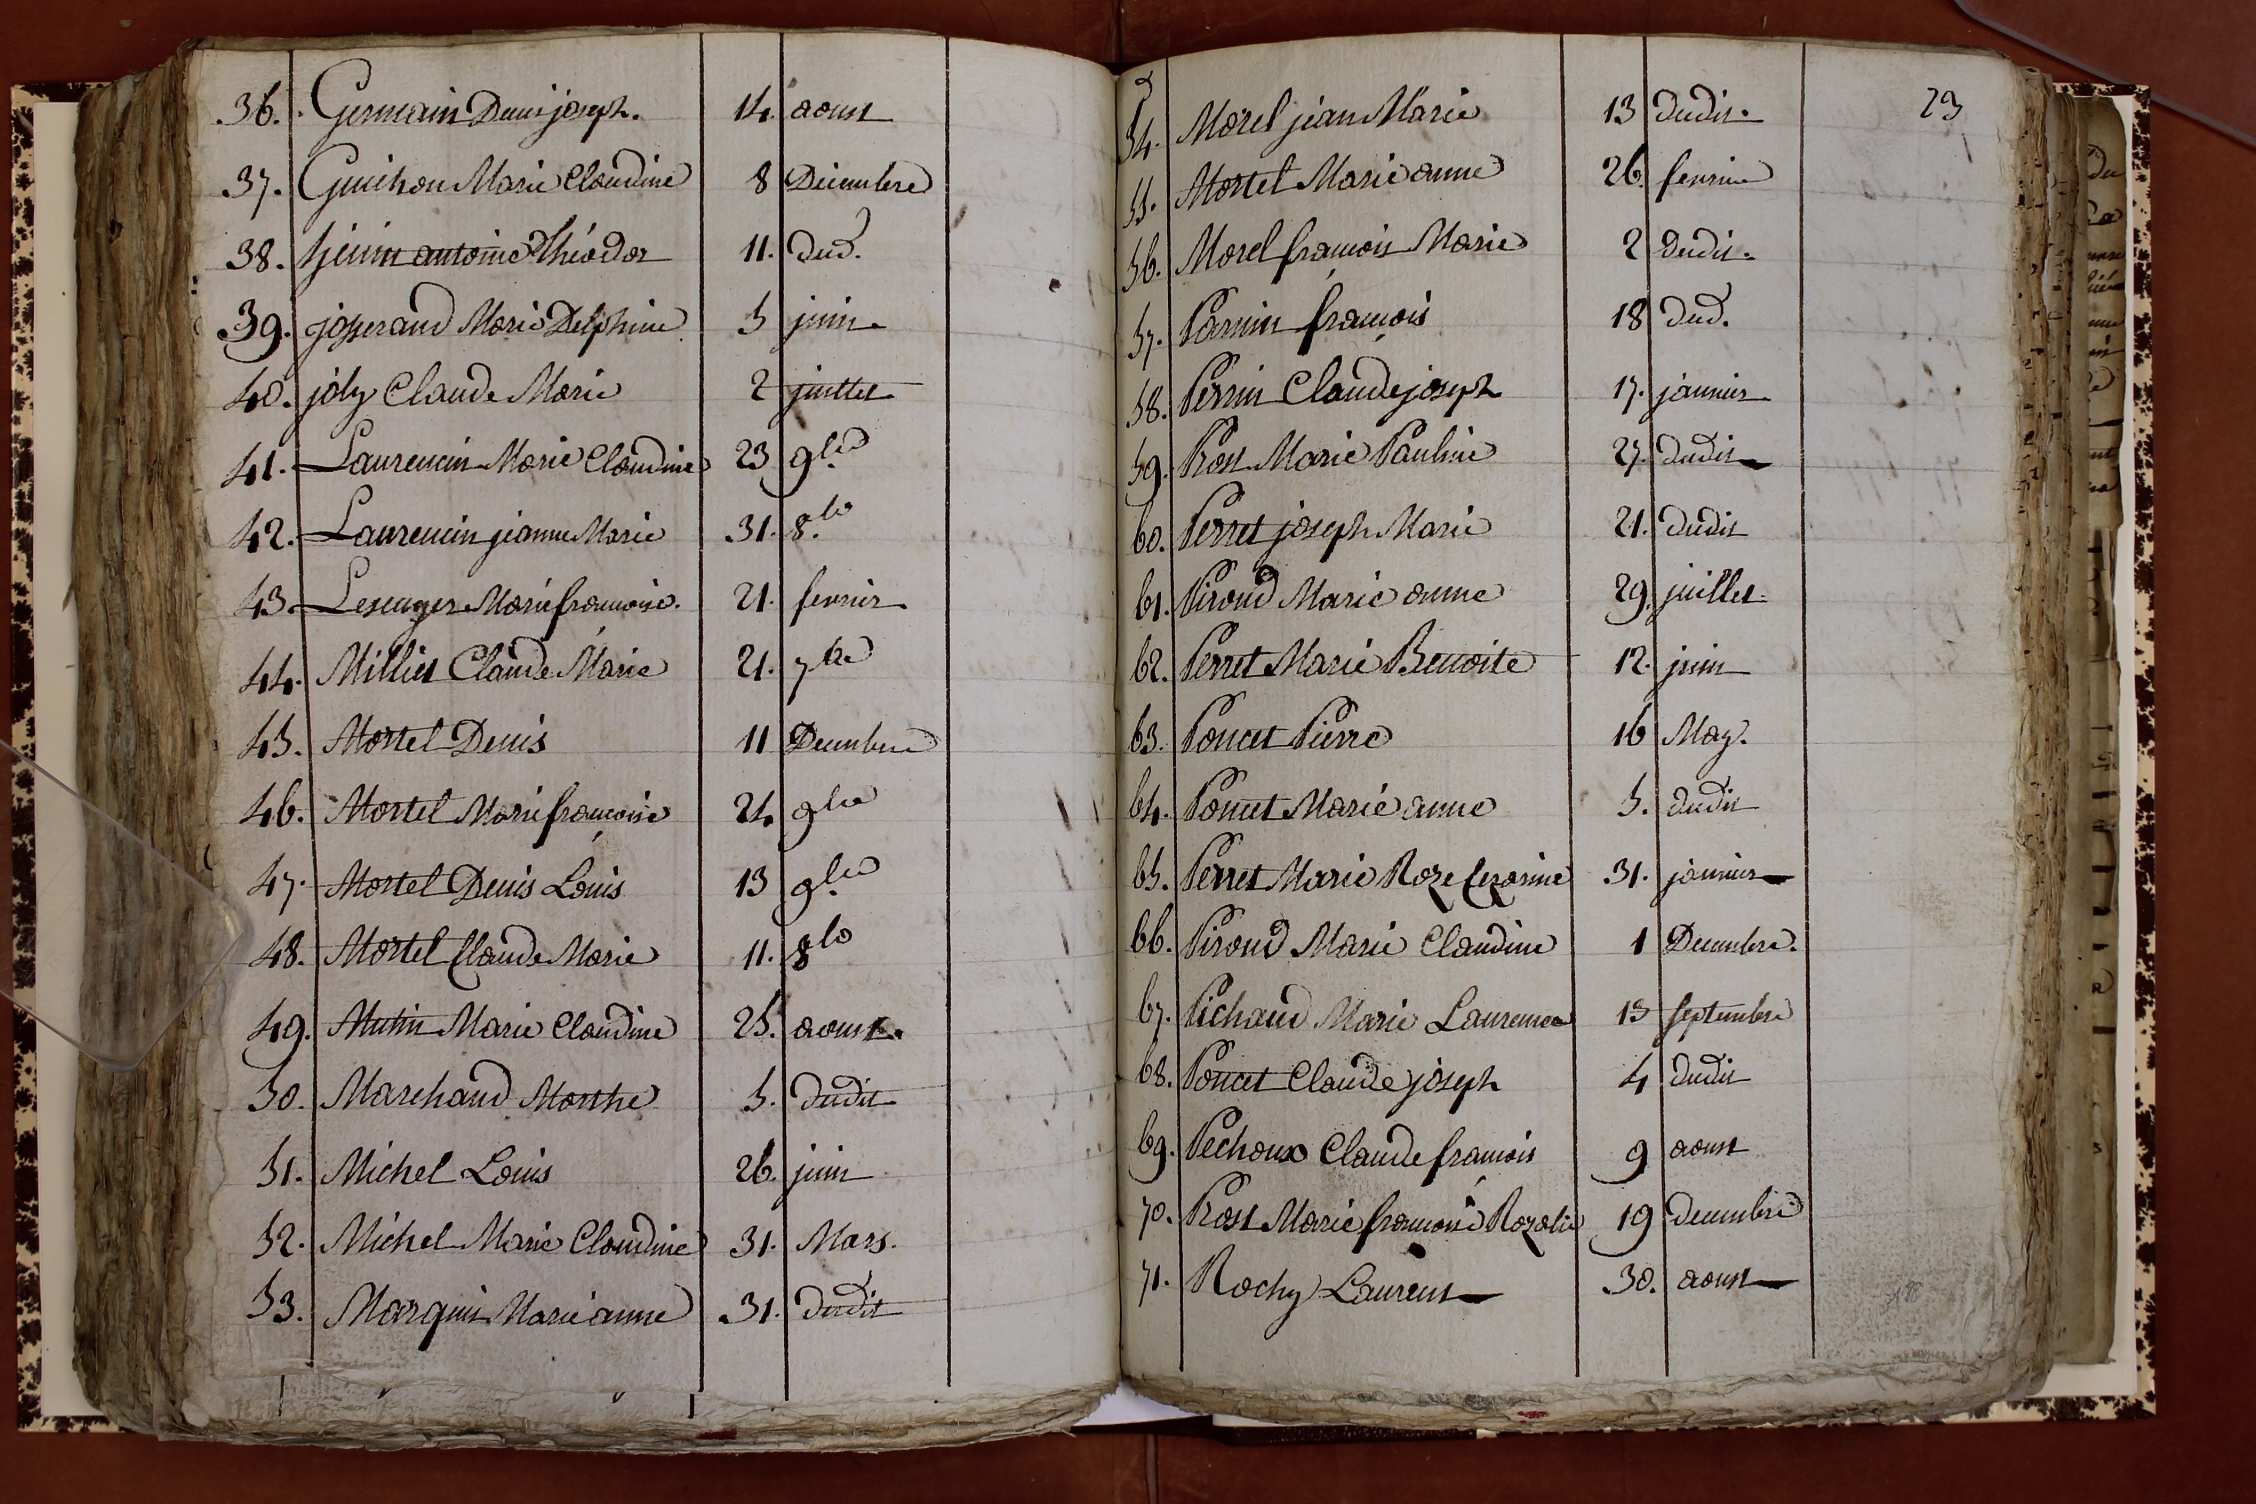 36. Germain Denis joseph. 14. aoust
37. Guichon Marie Claudine 8 Décembre
38. antoine Théodor 11. dud.
39. josserand Marie Delphine 5 juin
40. joly Claude Marie 2 juillet
41. Laurencin Marie Claudine 23 9bre
42. Laurencin jeanne Marie 31. 8.bre
43. Marie françoise. 21. fevrier
44. Milliet Claude Marie 21. 7bre
45. Mortel Denis 11 Decembre
46. Mortel Marie françoise 24 9bre
47. Mortel Denis Louis 13 9bre
48. Mortel Claude Marie 11. 8bre
49. Mutin Marie Claudine 25. aoust.
50. Marchand Marthe 5. dudit
51. Michel Louis 26. juin
52. Michel Marie Claudine 31. Mars.
53. Marquis Marie anne 31. dudit
23
54. Morel jean Marie 13 dudit.
55. Mortel Marie anne 26. fevrier
56. Morel françois Marie 2 dudit.
57. Parnin françois 18 dud.
58. Perrin Claude joseph 17. janvier
59. Prost Marie Pauline 27. dudit
60. Perret joseph Marie 21. dudit
61. Piroud Marie anne 29. juillet
62. Perret Marie Benoite 12. juin
63. Poncet Pierre 16 May.
64. Poncet Marie anne 5. dudit
65. Perret Marie Roze Cezarine 31. janvier
66. Piroud Marie Claudine 1 Decembre.
67. Pichaud Marie Laurence 13 septembre
68. Poncet Claude joseph 4 dudit
69. Pechoux Claude françois 9 aoust
70. Prost Marie françoise Rozalie 19 decembre
71. Rochy Laurent 30. aoust